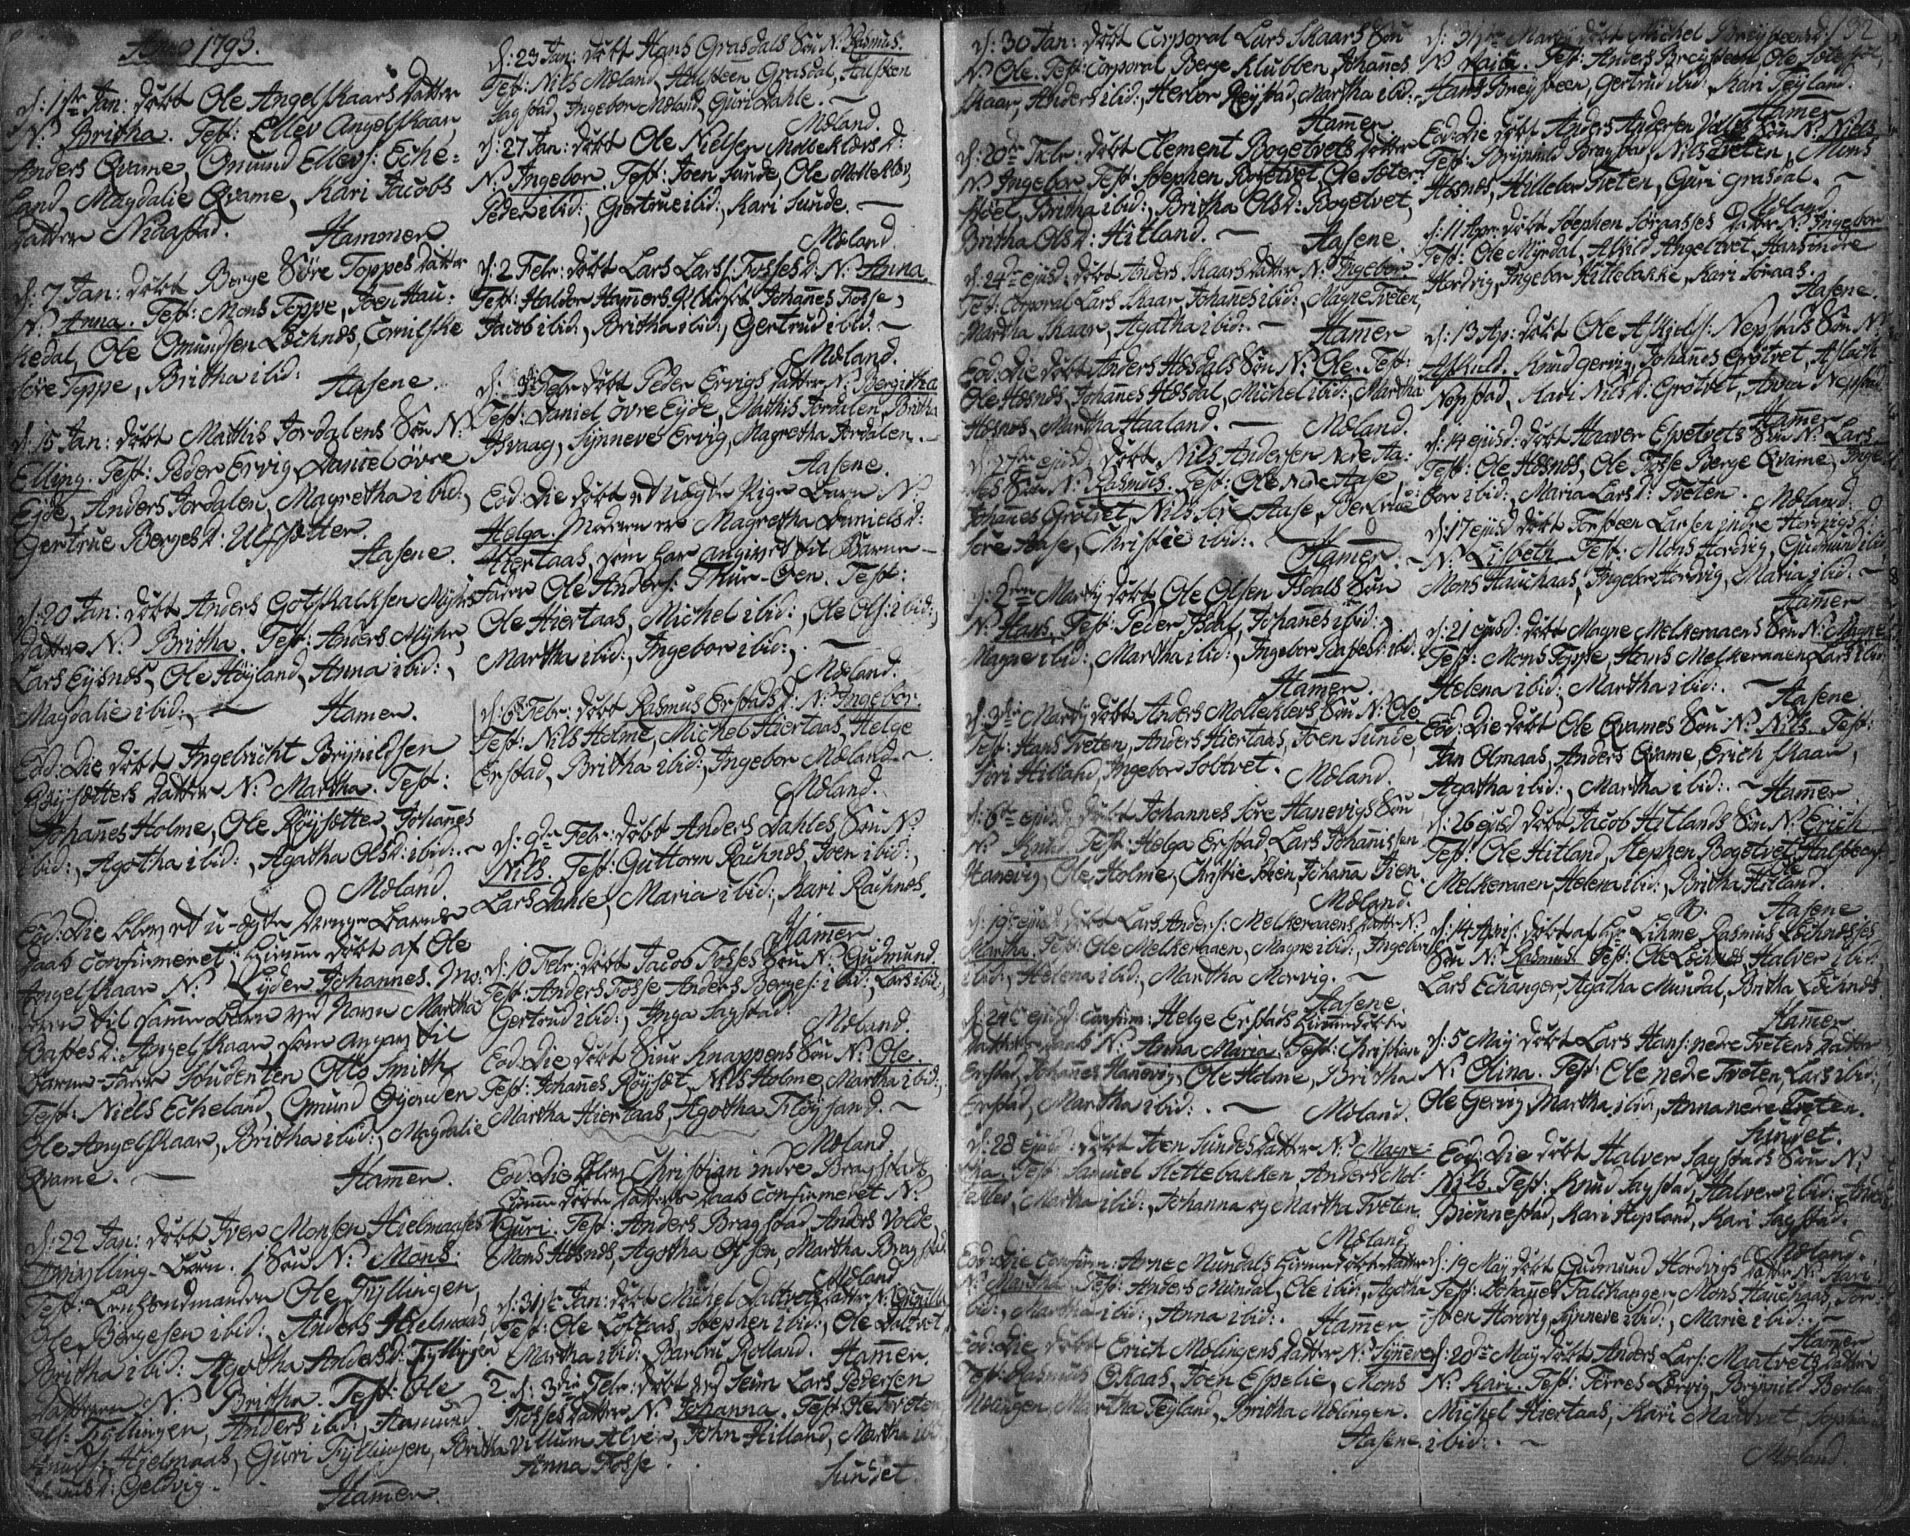 Anno 1793.
d: 1ste Jan: døbt Ole Angelskaars datter
N: Britha. Test: Ellev Angelskaar,
Anders Qvame, Omund Ellevs: Eche-
land, Magdalie Qvame, Kari Jacobs
datter Niaastad. Hammer
d: 7 Jan: døbt Berge Søre Toppes datter
N: Anna. Test: Mons Toppe, Joen Hau-
kedal, Ole Omundsen Løchnes, Cornilske
Søre Toppe, Britha ibid: Aasene.
d: 15 Jan: døbt Mathis Jordalens Søn N:
Elling. Test: Peder Ervig, Daniel øvre
Eÿde, Anders Jordalen, Magretha ibid:,
Gertrue Berges D: Ulfsetter.
Aasene.
d: 20 Jan: døbt Anders Gotskalksen Myhrs
datter N: Britha. Test: Anders Myhr,
Lars Eysnes, Ole Høyland, Anna ibid:,
Magdalie ibid: — Hamer.
Eod: Die døbt Ingebricht Brynildsen
Røysetters datter N: Martha. Test:
Johanes Holme, Ole Røysetter, Johanes
ibid:, Agotha ibid:, Agatha Olsd: ibid: —
Mæland.
Eod: Die blev et u-ægte Drenge-Barns
daab confirmeret; hjemme døbt af Ole
Angelskaar N: Lyder Johannes. Mo-
deren til samme Barn ved Navn Martha
Bastes D: Angelskaar, som angav til
Barne-Fader Studenten Otto Smith,
Test: Niels Echeland, Omund Øyården
Ole Angelskaar, Britha ibid:, Magdalie
Qvame. — Hamer.
d: 22 Jan: døbt Iver Monsen Hielmaases
Twilling-Børn. 1 Søn N: Mons.
Test: Lensmanden Ole Tyllingen,
Ole Børgesen ibid:, Anders Hielmaas,
Britha ibid: Agotha Anders D: Tyllingen
datteren N: Britha. Test: Ole
Tyllingen, Anders ibid:, Aamund
Knuds: Hjelmaas, Guri Tyllingen, Britha
Geldvig. — Hamer.
d: 23 Jan: døbt Hans Grasdals Søn N: Rasmus.
Test: Nils Mæland, Halsteen Grasdal, Halsteen
Sagstad, Ingebor Mæland, Guri Dahle. —
Mæland.
d: 27 Jan: døbt Ole Nielsen Molleklevs D:
N: Ingebor. Test: Joen Sunde, Ole Molleklev,
Peder ibid:, Gertrue ibid:, Kari Sunde. —
Mæland.
d: 2 Febr: døbt Lars Larss: Fosses D: N: Anna
Test: Haldor Hamers Johanes Fosse,
Jacob ibid:, Britha ibid:, Gertrud ibid: —
Mæland.
d: Febr: døbt Peder Ervigs datter N: Bergitha
Test: Daniel øvre Eyde, Mathis Jordalen, Britha
Isvaag, Synneve Ervig, Magretha Jordalen. —
Aasene.
Eod: Die døbt et uægte Pige Barn N:
Helga. Moderen er Magretha Daniels D:
Hiertaas, som har angivet til Barne-
Fader Ole Anders: Thur-Øen. Test:
Ole Hiertaas, Michel ibid:, Ole Ols: ibid:,
Martha ibid:, Ingebor ibid:, —
Mæland.
d: 6 Febr: døbt Rasmus Erstads D: N: Ingebor.
Test: Nils Holme, Michel Hiertaas, Helge
Erstad, Britha ibid:, Ingebor Mæland. —
Mæland.
d: 9de Febr: døbt Anders Dahles Søn N:
Nils. Test: Guttorm Rachnes, Joen ibid:,
Lars Dahle, Maria ibid:, Kari Rachnes.
Hamer
d: 10 Febr: døbt Jacob Fosses Søn N: Gudmund.
Test: Anders Fosse Anders Berges: ibid:, Lars ibid:,
Gertrud ibid:, Inga Sagstad.
Mæland.
Eod: Die døbt Siur Knappens Søn N: Ole.
Test: Johanes Røyset, Nils Holme, Martha ibid:,
Martha Hiertaas, Agotha Tløysand. —
Mæland
Eod: Die blev Christian indre Bragstads
hiemme døbte datters daab confirmeret N:
Guri. Test: Anders Bragstad, Anders Volde,
Mons Høsnes, Agotha Ossen, Martha Bragstad.
Mæland
d: 31ste Jan: døbt Michel Daltvets datter N:
Test: Ole Loftaas, Stephen ibid:, Ole Daltvet
Martha ibid: Barbru Rolland. Hamer.
2 d: 3die Febr: døbt ved Seim Lars Pedersen
Fosses datter N: Johanna. Test: Ole Tveten,
Villum Alver, John Hilland, Martha ibid:
Anna Fosse. Sundet.
d: 30 Jan: døbt Corporal Lars Skaars Søn
N: Ole. Test: Corporal Berge Klubben, Johanes
Skaar, Anders ibid:, Herlor Reystad, Martha ibid:
Hamer
d: 20de Febr: døbt Clement Bogetvets datter
N: Ingebor Test: Stephen Bogetvet, Ole Sæter-
støel, Britha ibid:, Britha Olsd: Bogetvet,
Britha Ols D: Hitland. — Aasene.
d: 24de ejusd: døbt Anders Skaars datter N: Ingebor
Test: Corporal Lars Skaar, Johanes ibid:, Magne Tveten,
Martha Skaar, Agatha ibid: — Hamer
Eod: Die døbt Anders Høsdals Søn N: Ole. Test:
Ole Høsnes, Johanes Høsdal, Michel ibid:, Martha
Høsnes, Martha Haaland. — Mæland.
d: ejusd: døbt Nils Andersen Nere Aa-
ses Søn N: Rasmus. Test: Ole Nere Aase
Johanes Grøtvet, Nils Søre Aase, Berthe
Søre Aase, Christie ibid:. Hamer. —
d: 2den Martj døbt Ole Olsen Isdals Søn
N: Hans. Test: Peder Isdal, Johanes ibid:,
Magne ibid:, Martha ibid:, Ingebor ibid:
Hamer.
d: 3die Martj døbt Anders Molleklevs Søn N: Ole
Test: Hans Tveten, Anders Hiertaas, Joen Sunde,
Siri Hilland, Ingebor Soltvet. Mæland.
d: 6te ejusd: døbt Johannes Søre Hanevigs Søn
N: Knud. Test: Helga Erstad Lars Johannissen
Hanevig, Ole Holme, Christie Stien, Johana Stien.
Mæland.
d: 19de ejusd døbt Lars Anders: Melkeraaens datter N:
Martha. Test: Ole Melkeraaen, Magne ibid:, Ingebor
ibid:, Helena ibid:, Martha Morvig. —
Aasene
d: 24de ejusd: confirm: Helge Erstads hiemmedøbte
datters daab N: Anna Maria. Test: Christian
Erstad, Johanes Hanevig, Ole Holme, Britha
Erstad, Martha ibid:. — Mæland.
d: 28 ejusd: døbt Joen Sundes datter N: Magre-
tha. Test: Samuel Slettebakken, Anders Mol-
leklev, Martha ibid:, Johanna og Martha Tveten.
Mæland
Eod: Die confirm: Arne Mundals hiemmedøbte datter
N: Martha Test: Anders Mundal, Ole ibid:, Agotha
ibid:, Martha ibid:, Anna ibid:. Hamer —
Eod: Die døbt Erich Mølingens datter N: Synneve.
Test: Rasmus Okaas, Joen Espelie, Mons
Mølingen, Martha Feyland, Britha Mølingen.
Aasene
132
d: 31te Martj døbt Michel Breysteens D:
N: Test: Anders Breysteen, Ole Sæterstøl,
Hans Breysteen, Gertrud ibid:, Kari Feyland.
Hamer
Eod: Die døbt Anders Andersen Søn N: Niels
Test: Brynild Bragstad, Nils Tveten, Mons
Høsnes, Hillebor Tveten, Guri Grasdal. —
Mæland.
d: 11 Apr: døbt Stephen Soraasses datter N: Ingebor
Test: Ole Myrdal, Askild Angeltvet, Aas indre
Hordvig, Ingebor Hillebakke, Kari Soraas.
Aasene.
d: 13 Ap: døbt Ole Askields: Nepstads Søn N:
Askild. Knud Gervig, Johanes Grøtvet, Aslach
Nepstad, Kari Nils D: Grøtvet, Anna Nepstad
Hamer
d: 14 ejusd: døbt Haaver Espetvets Søn N: Lars.
Test: Ole Høsnes, Ole Fosse Berge Qvame, Inge-
bor ibid:, Maria Lars D: Tveten. Mæland.
d: 17 ejusd døbt Torsteen Larsen indre Hordvigs D:
N: Lisbeth. Test: Mons Hordvig, Gudmund ibid
Mons Hauchaas, Ingebor Hordvig, Maria ibid: —
Hamer
d: 21 ejusd: døbt Magne Melkeraaens Søn N: Magne
Test: Mons Toppe, Hans Melkeraaen Lars ibid:
Helena ibid:, Martha ibid:. — Aasene
Eod: Die døbt Ole Qvames Søn N: Nils. Test:
Jan Olmaas, Anders Qvame, Erich Skaar,
Agatha ibid:, Martha ibid:. — Hamer
d: 26 ejusd døbt Jacob Hitlands Søn N: Erich
Test: Ole Hitland, Stephen Bogetvet, Halsteen
Melkeraaen, Helena ibid:, Britha Hitland.
Aasene
d: 14 April: døbt af Hr Lihme Rasmus Løchneses
Søn N: Rasmus. Test: Ole Løchnes, Halver ibid:
Lars Echanger, Agatha Mundal, Britha Løchnes.
Hamer
d: 5 May døbt Lars Hans: nedre Tvetens datter
N: Olina. Test: Ole nedre Tveten, Lars ibid:
Ole Gervig Martha ibid:, Anna nedre Tveten.
Sundet.
Eod: Die døbt Halver Sagstads Søn N:
Nils. Test: Knud Sagstad, Halver ibid:, Anders
Biønnestad, Kari Hopland, Kari Sagstad.
Mæland.
d: 19 May døbt Gudmund Hordvigs datter N: Kari
Test: Johanes Salhanger, Mons Hauchaas, Tor-
steen Hordvig, Synneve ibid:, Marie ibid:. —
Hamer
d: 20de May døbt Anders Lars: Maatvets datter
N: Kari. Test: Sørres Lervig, Brynild
Michel Hiertaas, Kari Maatvet, Sophia
ibid:. —
Mæland.